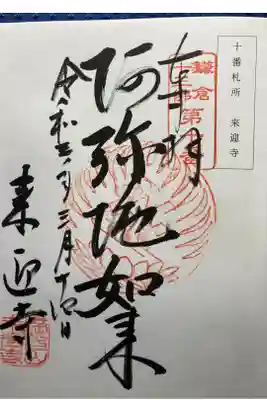 十番札所 来迎寺
奉拝
鎌倉
第十番
阿弥陀如来
令和六年三月十四日
来迎寺